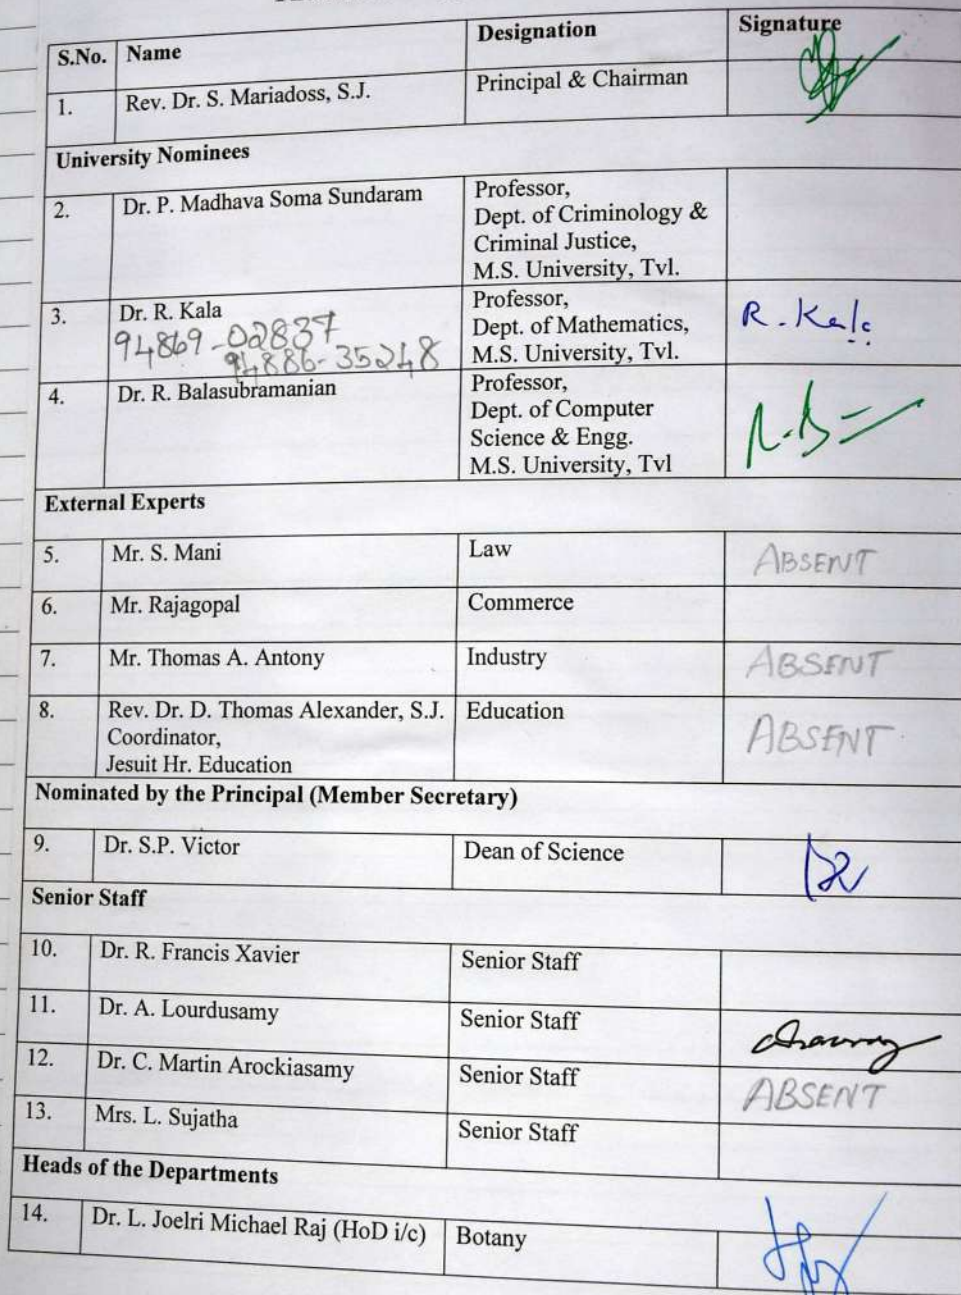 S.No. Name Designation Signature
1. Rev. Dr. S. Mariadoss, S.J. Principal & Chairman
University Nominees
2. Dr. P. Madhava Soma Sundaram Professor,
Dept. of Criminology &
Criminal Justice,
M.S. University, Tvl.
3. Dr. R. Kala Professor,
94869-02837 Dept. of Mathematics, R. Kala
94886-35248 M.S. University, Tvl.
4. Dr. R. Balasubramanian Professor,
Dept. of Computer
Science & Engg.
M.S. University, Tvl
External Experts
5. Mr. S. Mani Law ABSENT
6. Mr. Rajagopal Commerce
7. Mr. Thomas A. Antony Industry ABSENT
8. Rev. Dr. D. Thomas Alexander, S.J. Education ABSENT
Coordinator,
Jesuit Hr. Education
Nominated by the Principal (Member Secretary)
9. Dr. S.P. Victor Dean of Science
Senior Staff
10. Dr. R. Francis Xavier Senior Staff
11. Dr. A. Lourdusamy Senior Staff
12. Dr. C. Martin Arockiasamy Senior Staff ABSENT
13. Mrs. L. Sujatha Senior Staff
Heads of the Departments
14. Dr. L. Joelri Michael Raj (HoD i/c) Botany